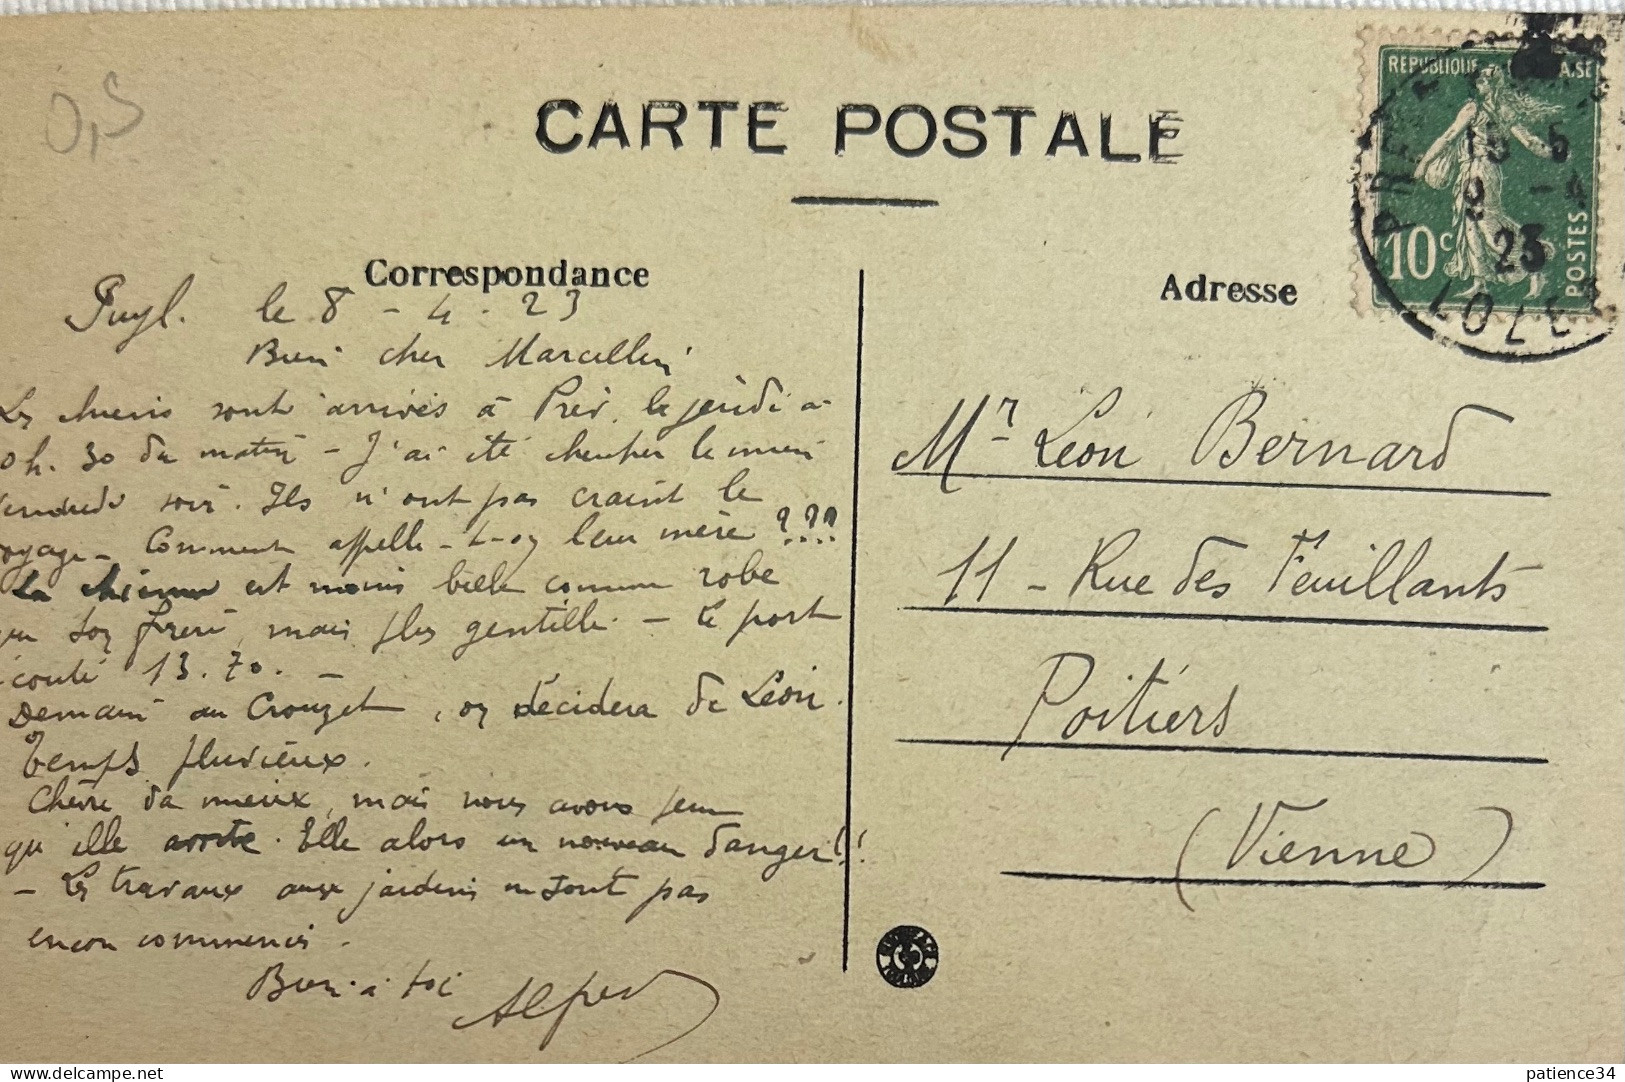 0,5
CARTE POSTALE
Correspondance
Adresse
REPUBLIQUE
10c
POSTES
15 5
9 -4
23
LOT
Puyl. le 8 - 4 - 23
Bien cher Marcellin
Les chiens sont arrivés à le jeudi à
0h. 30 du matin - J'ai été chercher le mien
vendredi soir. Ils n'ont pas craint le
oyage - Comment appelle-t-on leur mère ????
La chienne est moins belle comme robe
que ton frère, mais plus gentille. - Le port
coûté 13.70. -
Demain au Crouzet, on décidera de Léon.
Temps pluvieux.
Chèvre va mieux, mais nous avons peur
qu'elle avorte. Elle alors un nouveau danger!!
- Les travaux aux jardins ne sont pas
encore commencés.
Bien à toi Alfred
Mr Léon Bernard
11 - Rue des Feuillants
Poitiers
(Vienne)
delcampe.net
patience34